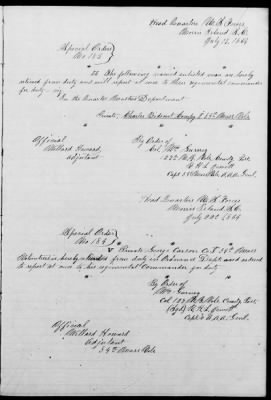 Head Quarters U.S. Forces
Morris Island S.C.
July 1864
Special Orders
No 183
The following named enlisted men are hereby
relieved from duty and will report at once to their regimental commander
for duty
In the Quarter Masters Department
Private Charles Company 54th Mass Vols
Official
Willard Howard,
Adjutant
By Order of
Col. Wm Gurney
Comdg Post
Capt A.A.A. Genl.
Head Quarters U.S. Forces
Morris Island, S.C.
July 20th 1864
Special Order
No 184
V Private George Carson Co 54th Mass
Volunteers is hereby relieved from duty in Ordnance Dept. and ordered
to report at once to his regimental Commander for duty
By Order of
Wm Gurney
Col 127 N.Y. Vols Comdg Post
Capt & A.A.A. Genl.
Official
Willard Howard
Adjutant
54th Mass Vols